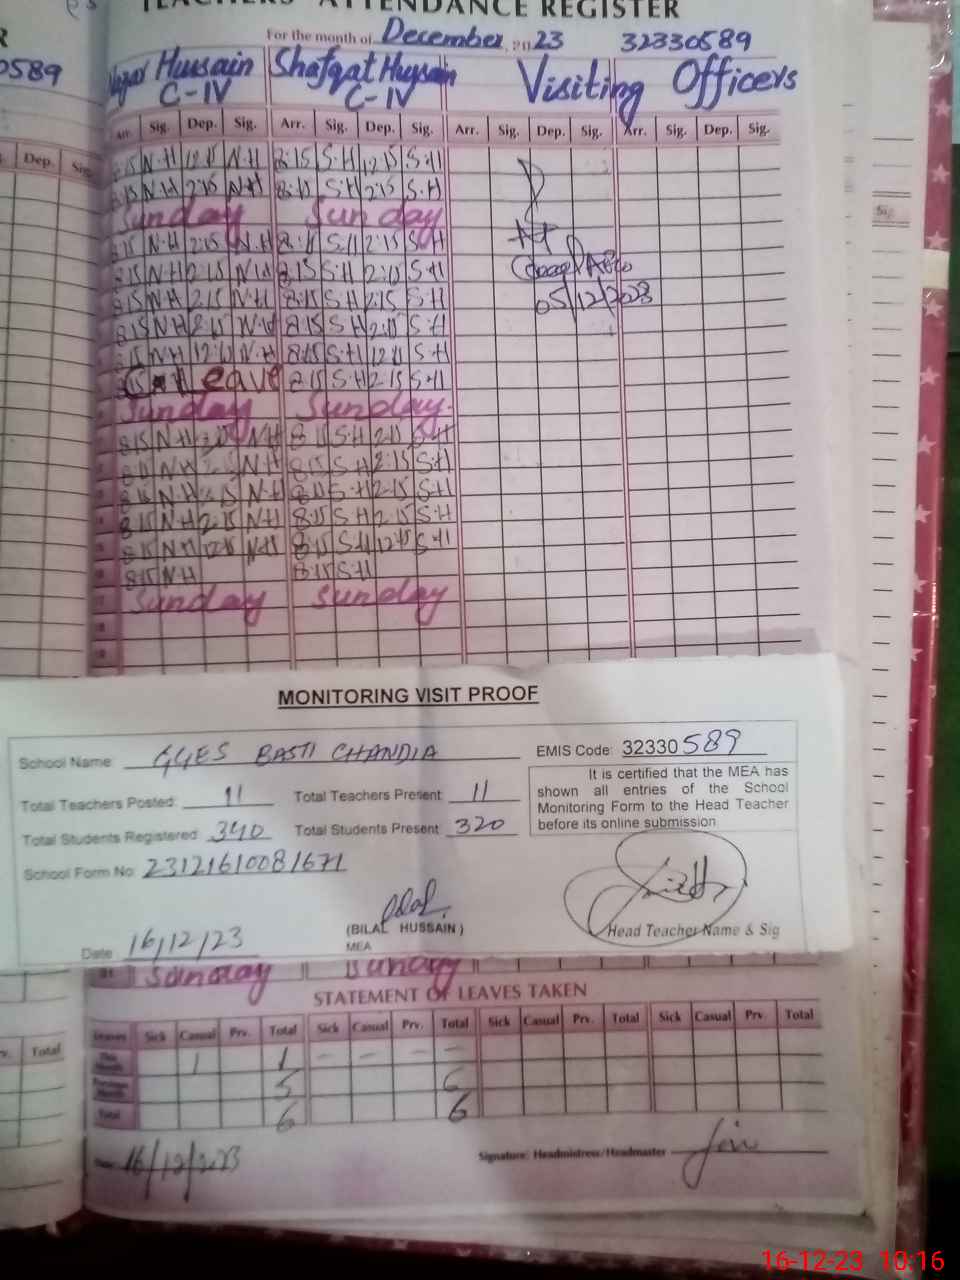 TEACHERS' ATTENDANCE REGISTER
For the month of December, 2023 32330589
0589
Hussain Shafqat Hussain Visiting Officers
C-IV C-IV
Arr. Sig. Dep. Sig. Arr. Sig. Dep. Sig. Arr. Sig. Dep. Sig. Arr. Sig. Dep. Sig.
Dep. Sig
8:15 N.H 12:15 N.H 8:15 S.H 12:15 S.H
8:15 N.H 2:15 N.H 8:15 S.H 2:15 S.H
Sunday Sunday
8:15 N.H 2:15 N.H 8:15 S.H 2:15 S.H
8:15 N.H 2:15 N.H 8:15 S.H 2:15 S.H
8:15 N.H 2:15 N.H 8:15 S.H 2:15 S.H
05/12/2023
8:15 N.H 2:15 N.H 8:15 S.H 2:15 S.H
8:15 N.H 12:15 N.H 8:15 S.H 12:15 S.H
Leave 8:15 S.H 2:15 S.H
Sunday Sunday
8:15 N.H N.H 8:15 S.H 2:15 S.H
8:15 N.H N.H 8:15 S.H 2:15 S.H
8:15 N.H 2:15 N.H 8:15 S.H 2:15 S.H
8:15 N.H 2:15 N.H 8:15 S.H 2:15 S.H
8:15 N.H 12:15 N.H 8:15 S.H 12:15 S.H
8:15 N.H 8:15 S.H
Sunday Sunday
MONITORING VISIT PROOF
School Name: GGES BASTI CHANDIA EMIS Code: 32330589
It is certified that the MEA has
shown all entries of the School
Monitoring Form to the Head Teacher
before its online submission.
Total Teachers Posted: 11 Total Teachers Present: 11
Total Students Registered: 340 Total Students Present: 320
School Form No: 23121610081671
(BILAL HUSSAIN)
MEA
Head Teacher Name & Sig
Date: 16/12/23
Sunday Sunday
STATEMENT OF LEAVES TAKEN
Leaves Sick Casual Prv. Total Sick Casual Prv. Total Sick Casual Prv. Total Sick Casual Prv. Total
Total
This Month 1 1 - - - -
Previous Month 5 6
Total 6 6
Date: 16/12/2023
Signature: Headmistress/Headmaster
16-12-23 10:16